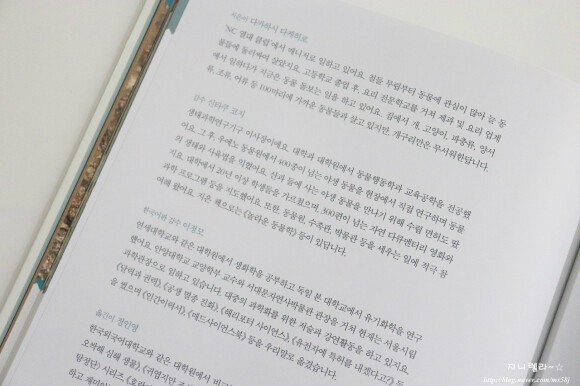 지은이 다카하시 다케히로
'NC 영대 클럽'에서 매니저로 일하고 있어요. 철들 무렵부터 동물에 관심이 많아 늘 동
물들에 둘러싸여 살았지요. 고등학교 졸업 후, 요리 전문학교를 거쳐 제과 및 요리 업계
에서 일하다가 지금은 동물 돌보는 일을 하고 있어요. 집에서 개, 고양이, 파충류, 양서
류, 조류, 어류 등 100마리에 가까운 동물들과 살고 있지만, 개구리만은 무서워한답니다.
감수 신타쿠 코지
생태과학연구기구 이사장이에요. 대학과 대학원에서 동물행동학과 교육공학을 전공했
어요. 그 후, 우에노 동물원에서 400종이 넘는 야생 동물을 현장에서 직접 연구하며 동물
의 생태와 사육법을 익혔어요. 산과 들에 사는 야생 동물을 만나기 위해 수렵 면허도 땄
지요. 대학에서 20년 이상 학생들을 가르쳤으며, 300편이 넘는 자연 다큐멘터리 영화와
과학 프로그램 등을 지도했어요. 또한, 동물원, 수족관, 박물관 등을 세우는 일에 적극 참
여해 왔어요. 지은 책으로는 《놀라운 동물학》 등이 있답니다.
한국어판 감수 이정모
연세대학교와 같은 대학원에서 생화학을 공부하고 독일 본 대학교에서 유기화학을 연구
했어요. 안양대학교 교양학부 교수와 서대문자연사박물관 관장을 거쳐 현재는 서울시립
과학관장으로 일하고 있습니다. 대중의 과학화를 위한 저술과 강연활동을 하고 있지요.
《달력과 권력》, 《공생 멸종 진화》, 《해리포터 사이언스》, 《유전자에 특허를 내겠다고?》
등을 썼으며 《인간이력서》, 《매드사이언스북》 등을 우리말로 옮겼습니다.
옮긴이 정인영
한국외국어대학교와 같은 대학원에서
오싹해 심해 생물》, 《귀엽지만
탐정단》 시리즈,
하고 재미있
지니멜라~☆
http://blog.naver.com/ms18j